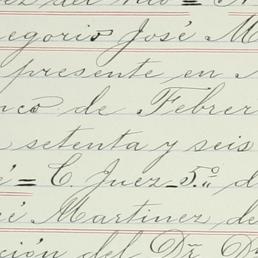 ez del
egorio José M
presente en
nco de Febrer
setenta y seis
é = C. Juez 5.º d
é Martinez de
ción del Dr. D